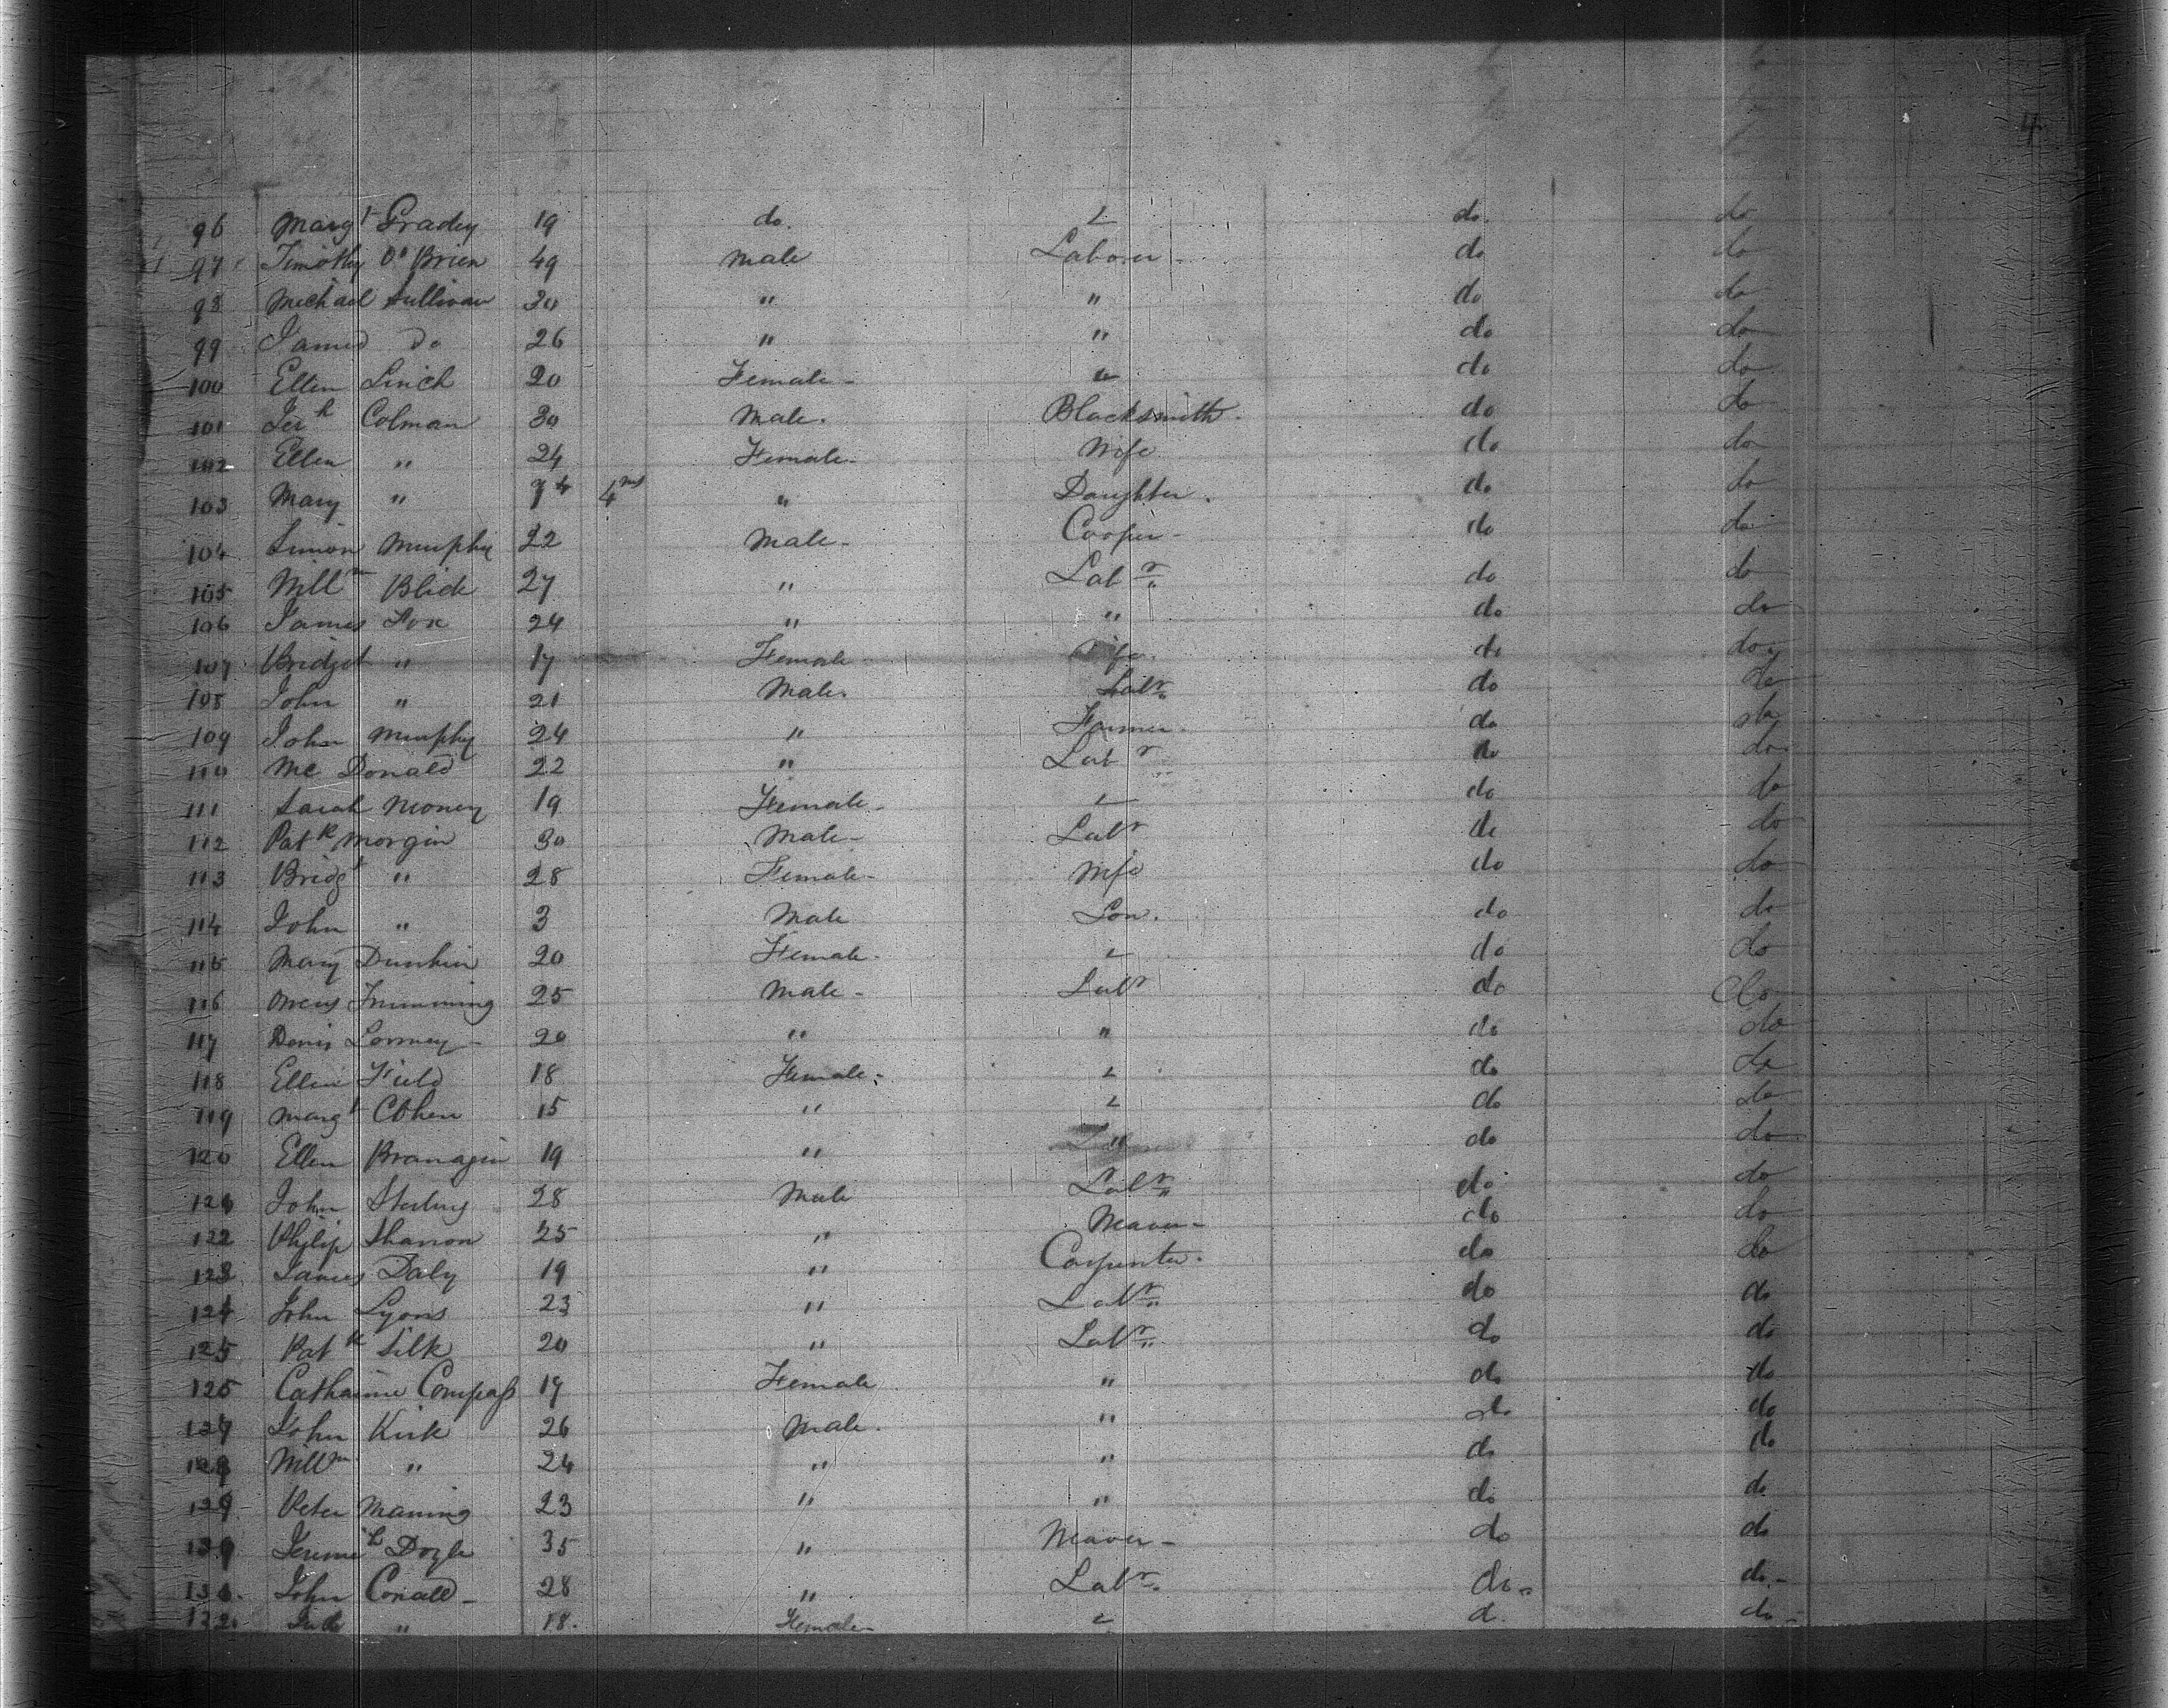 4
96 Margt Grady 19 do. do. do
97 Timothy O'Brien 49 Male Laborer - do do
98 Michael Sullivan 30 " " do do
99 James Do 26 " " do do
100 Ellen Linch 20 Female - do do
101 Jerh Colman 30 Male. Blacksmith. do do
102 Ellen " 24 Female - Wife do do
103 Mary " 4ms " Daughter. do do
104 Simon Murphy 22 Male - Cooper - do do
105 Willm Blick 27 " Labr do do
106 James Fox 24 " " do do
107 Bridget " 17 Female - Wife. do do
108 John " 21 Male. Labr do do
109 John Murphy 24 " Farmer. do do
110 Mc Donald 22 " Labr do do
111 Sarah Money 19 Female - do do
112 Patk Morgin 30 Male - Labr do do
113 Bridgt " 28 Female - Wife do do
114 John " 3 Male Son. do do
115 Mary Dunkin 20 Female - do do
116 25 Male - Labr do do
117 Denis 20 " " do do
118 Ellen Field 18 Female - do do
119 Margt Cohen 15 " do do
120 Ellen Branagin 19 " " do do
John Sterling 28 Male Labr do do
122 Philip Shannon 25 " Weaver - do do
123 James Daly 19 " Carpenter. do do
124 John Lyons 23 " Labr do do
125 Patk Silk 20 " Labr do do
125 Catharine Compass 19 Female " do do
127 John Kirk 26 Male. " do do
128 Willm " 24 " " do do
129 Peter Maning 23 " " do do
Jeremih Doyle 35 " Weaver - do do
John Conall - 28 " Labr. do - do. -
" 18. Female - d. do -